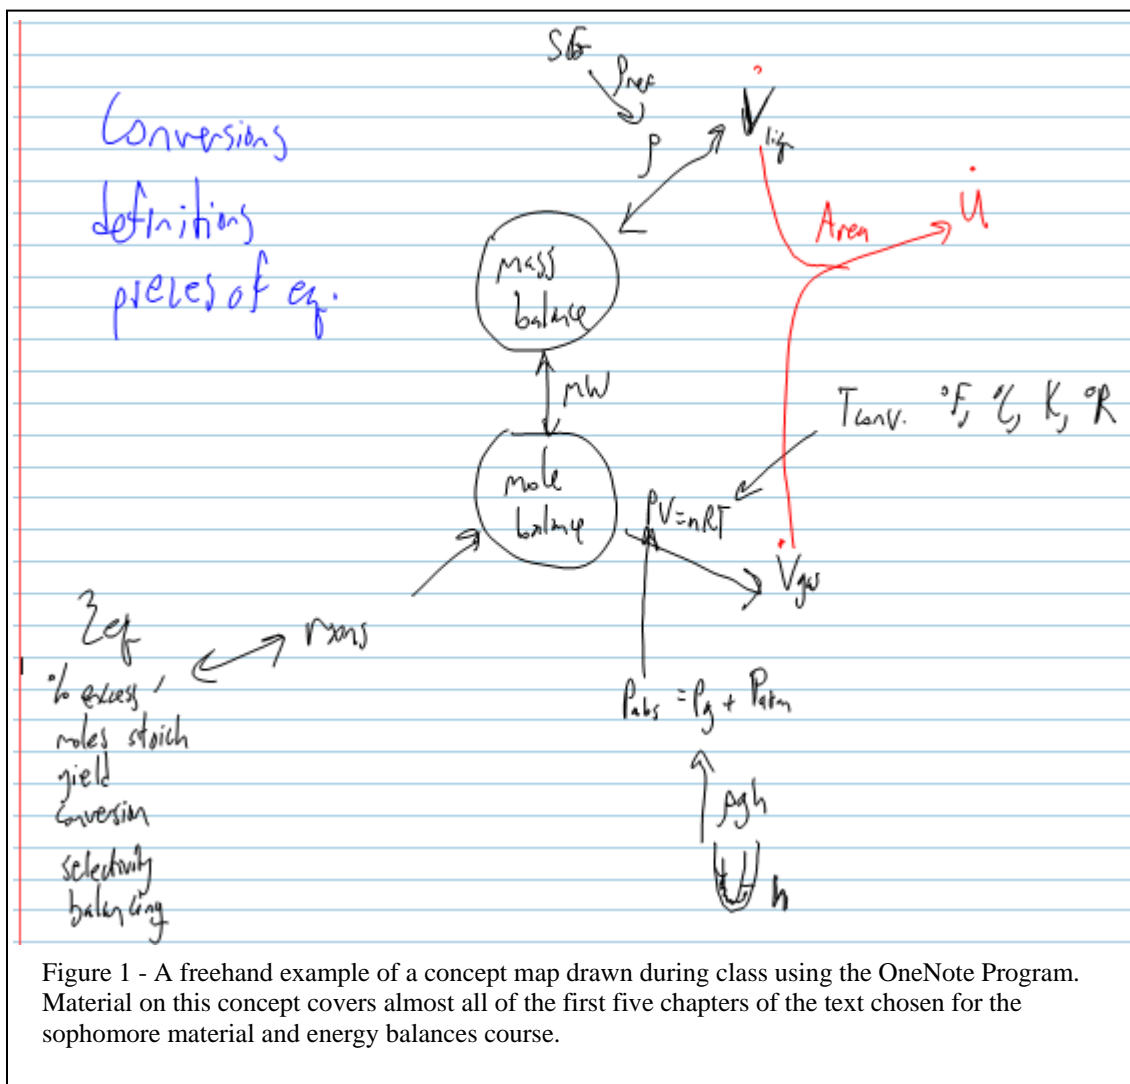 SG
ρref
ρ
V̇liq
Conversions
definitions
pieces of eq.
Area
u̇
mass
balance
MW
Tconv. °F, °C, K, °R
mole
balance
PV=nRT
V̇gas
rxns
ξeq
% excess
moles stoich
yield
conversion
selectivity
balancing
Pabs = Pg + Patm
ρgh
h
Figure 1 - A freehand example of a concept map drawn during class using the OneNote Program.
Material on this concept covers almost all of the first five chapters of the text chosen for the
sophomore material and energy balances course.